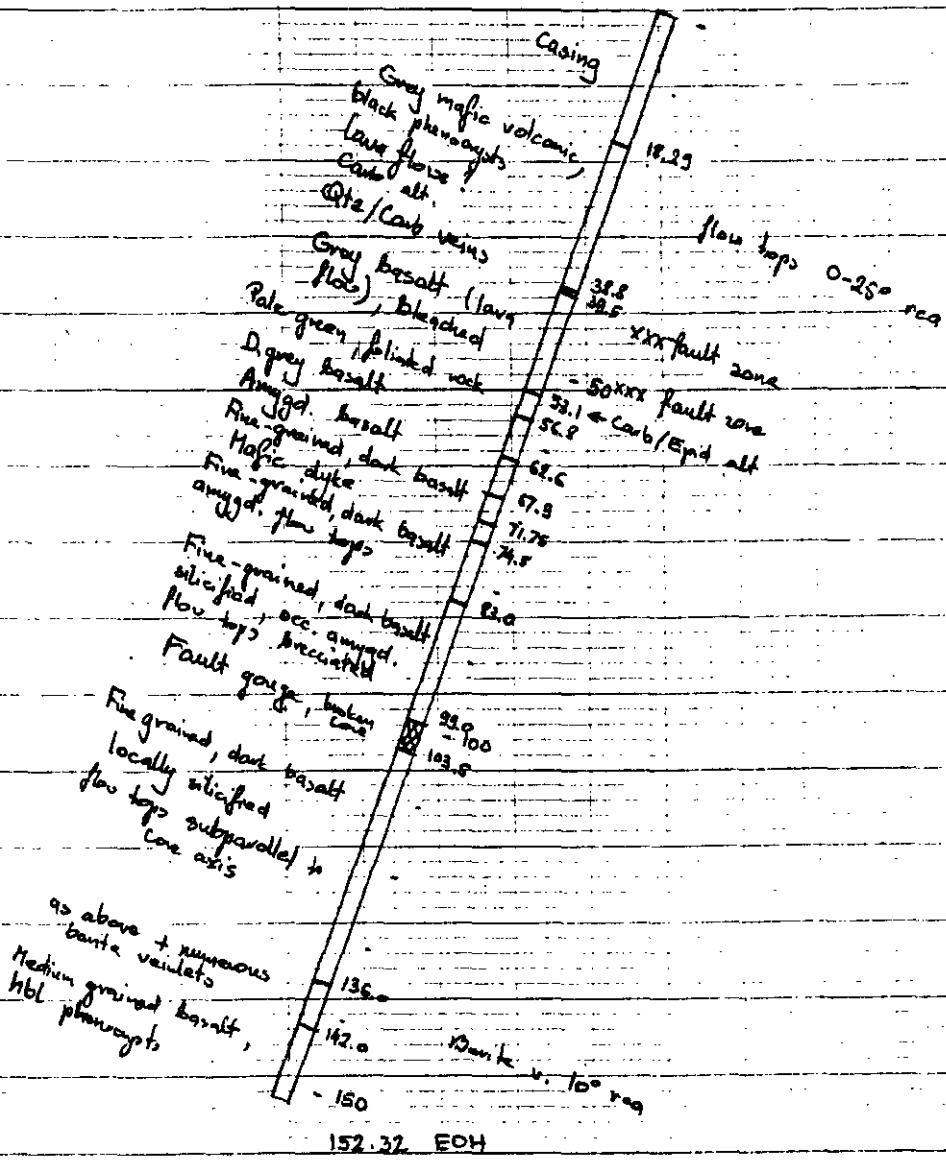 Casing
Grey mafic volcanic,
black phenocrysts
Lava flows?
Carb alt.
Qtz/Carb veins
18.29
flow tops 0-25° rca
Grey basalt (lava
flow), bleached
38.8
39.5
xxx fault zone
Pale green, foliated rock
- 50 xxx fault zone
D. grey basalt
53.1 ← Carb/Epid alt
Amygd. basalt
56.8
Fine-grained, dark basalt
62.6
Mafic dyke
67.9
Fine-grained, dark basalt
amygd. flow tops
71.75
74.8
Fine-grained, dark basalt
silicified, occ. amygd.
flow tops brecciated
83.0
Fault gouge, broken
core
99.0
- 100
103.5
Fine grained, dark basalt
locally silicified
flow tops subparallel to
core axis
as above + numerous
barite veinlets
136.0
Medium grained basalt,
hbl phenocrysts
142.0
Barite v. 10° rca
- 150
152.32 EOH